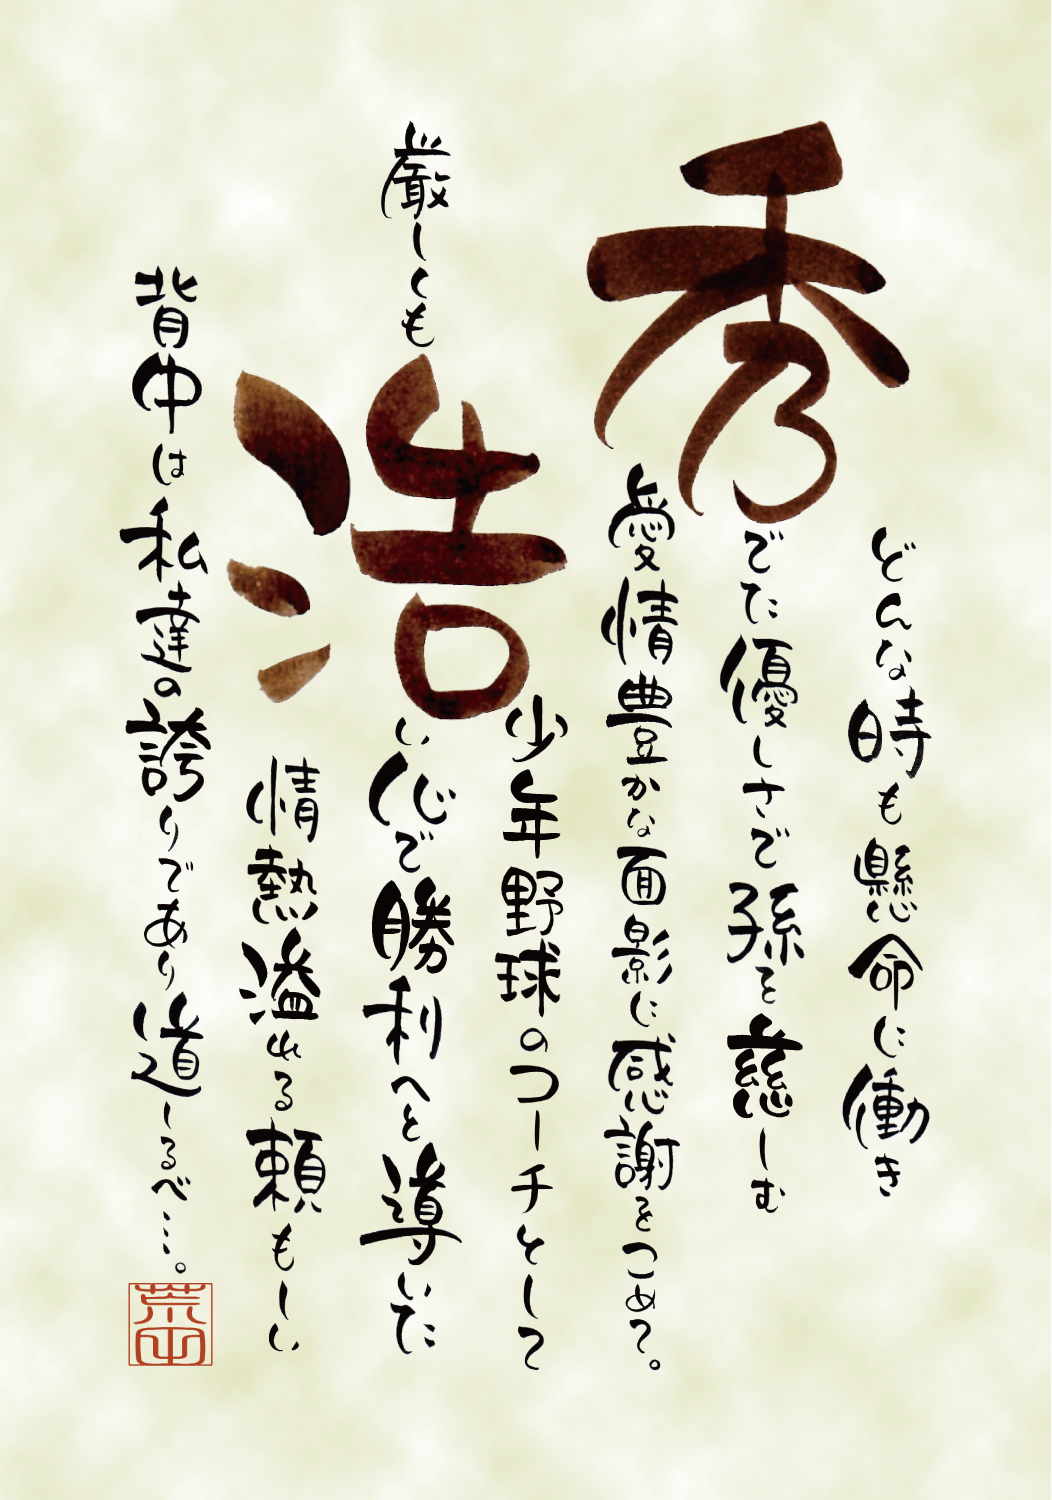 どんな時も懸命に働き
秀でた優しさで孫を慈しむ
愛情豊かな面影に感謝をつめて。
少年野球のコーチとして
厳しくも浩い心で勝利へと導いた
情熱溢れる頼もしい
背中は私達の誇りであり道しるべ…。